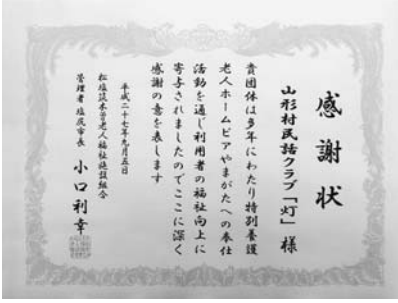 感謝状
山形村民話クラブ「灯」様
貴団体は多年にわたり特別養護
老人ホームピアやまがたへの奉仕
活動を通じ利用者の福祉向上に
寄与されましたのでここに深く
感謝の意を表します
平成二十七年九月五日
松塩筑木曽老人福祉施設組合
管理者 塩尻市長 小口利幸